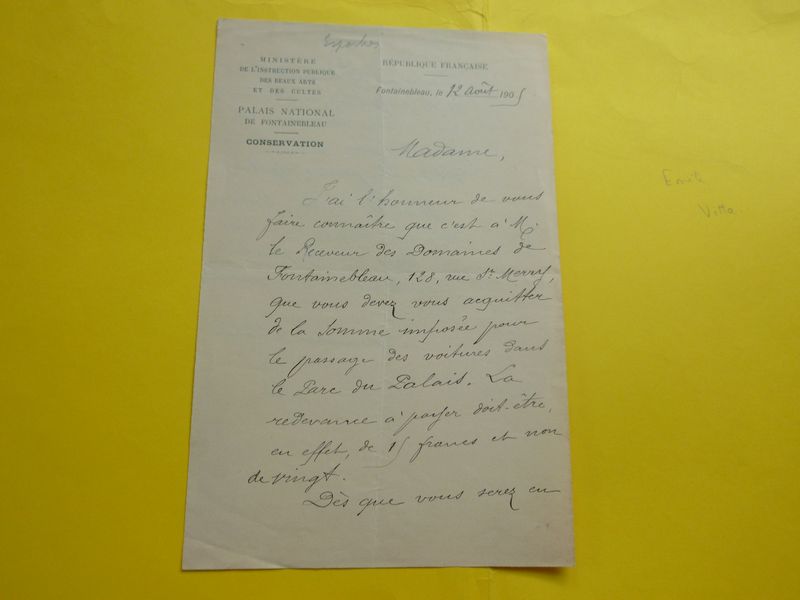 MINISTÈRE
DE L'INSTRUCTION PUBLIQUE
DES BEAUX ARTS
ET DES CULTES
PALAIS NATIONAL
DE FONTAINEBLEAU
CONSERVATION
RÉPUBLIQUE FRANÇAISE
Fontainebleau, le 12 Août 1905
Madame,
J'ai l'honneur de vous
faire connaître que c'est à M.
le Receveur des Domaines de
Fontainebleau, 128, rue St. Merry,
que vous devez vous acquitter
de la somme imposée pour
le passage des voitures dans
le Parc du Palais. La
redevance à payer doit-être,
en effet, de 15 francs et non
de vingt.
Dès que vous serez en